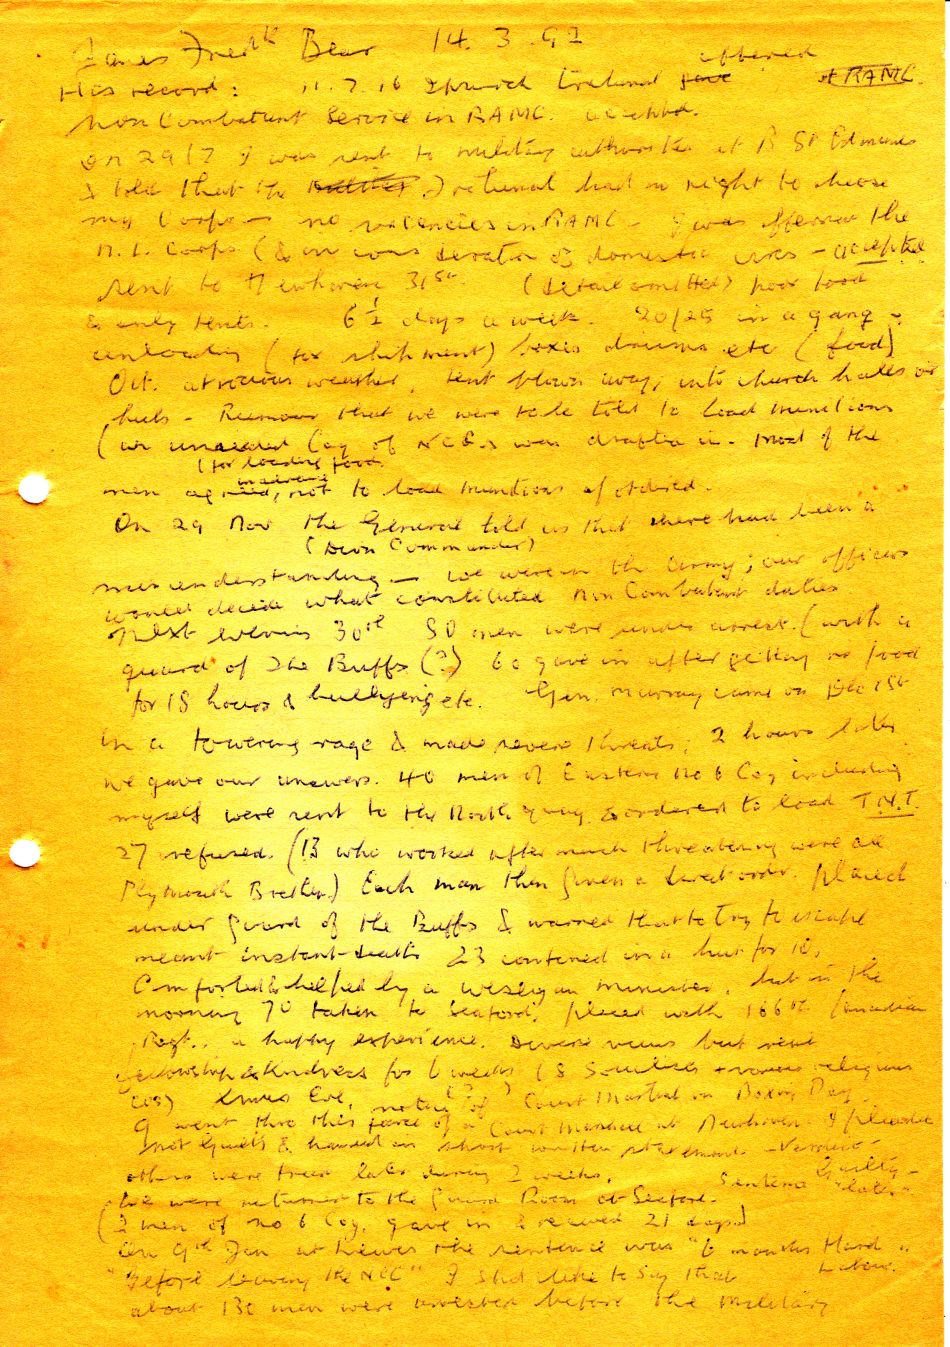 James Fredk Bear 14.3.92
His record: 11.7.16 Ipswich Tribunal offered
Non Combatant Service in RAMC. accepted.
On 29/7 I was sent to military authorities at B St Edmunds
& told that the tribunal had no right to choose
my Corps – no vacancies in RAMC – I was offered the
N.C. Corps (& in consideration of domestic – accepted
sent to Newhaven 31st (detail omitted) poor food
& only tents. 6½ days a week. 20/25 in a gang –
unloading (for shipment) boxes drums etc (food)
Oct. atrocious weather, tent blown away, into church halls or
huts – Rumour that we were to be told to load munitions
(an unarmed Coy of NCC was drafted in – most of the
(for loading food
men agreed, in advance, not to load munitions if ordered.
On 29 Nov the General told us that there had been a
(Divn Commander)
misunderstanding – we were in the army; our officers
would decide what constituted Non Combatant duties
Next evening 30th 90 men were under arrest. (with a
guard of the Buffs (?) 60 gave in after getting no food
for 18 hours & bullying etc. Gen. Murray came on Dec 1st
in a towering rage & made severe threats; 2 hours later
we gave our answers. 40 men of Eastern No 6 Coy including
myself were sent to the North Quay & ordered to load T.N.T.
27 refused. (13 who worked after much threatening were all
Plymouth Brethren.) Each man then given a direct order. placed
under guard of the Buffs & warned that to try to escape
meant instant death. 23 confined in a hut for 10,
Comforted & helped by a Wesleyan minister, but in the
morning 70 taken to Seaford, placed with 166th Canadian
Regt.. a happy experience. Diverse views but real
fellowship & kindness for 6 weeks (8 Socialists + various religious
cos) Xmas Eve, notice of Court Martial on Boxing Day.
I went thro this farce of a Court Martial at Newhaven. I pleaded
not guilty & handed in short written statement – Verdict –
others were tried later during 2 weeks. Guilty –
Sentence "later"
We were returned to the Guard Room at Seaford.
(2 men of No 6 Coy, gave in & received 21 days)
On 9th Jan at Lewes the sentence was "6 months Hard
Labour.
"Before leaving the NCC" I shd like to say that
about 130 men were arrested before the military